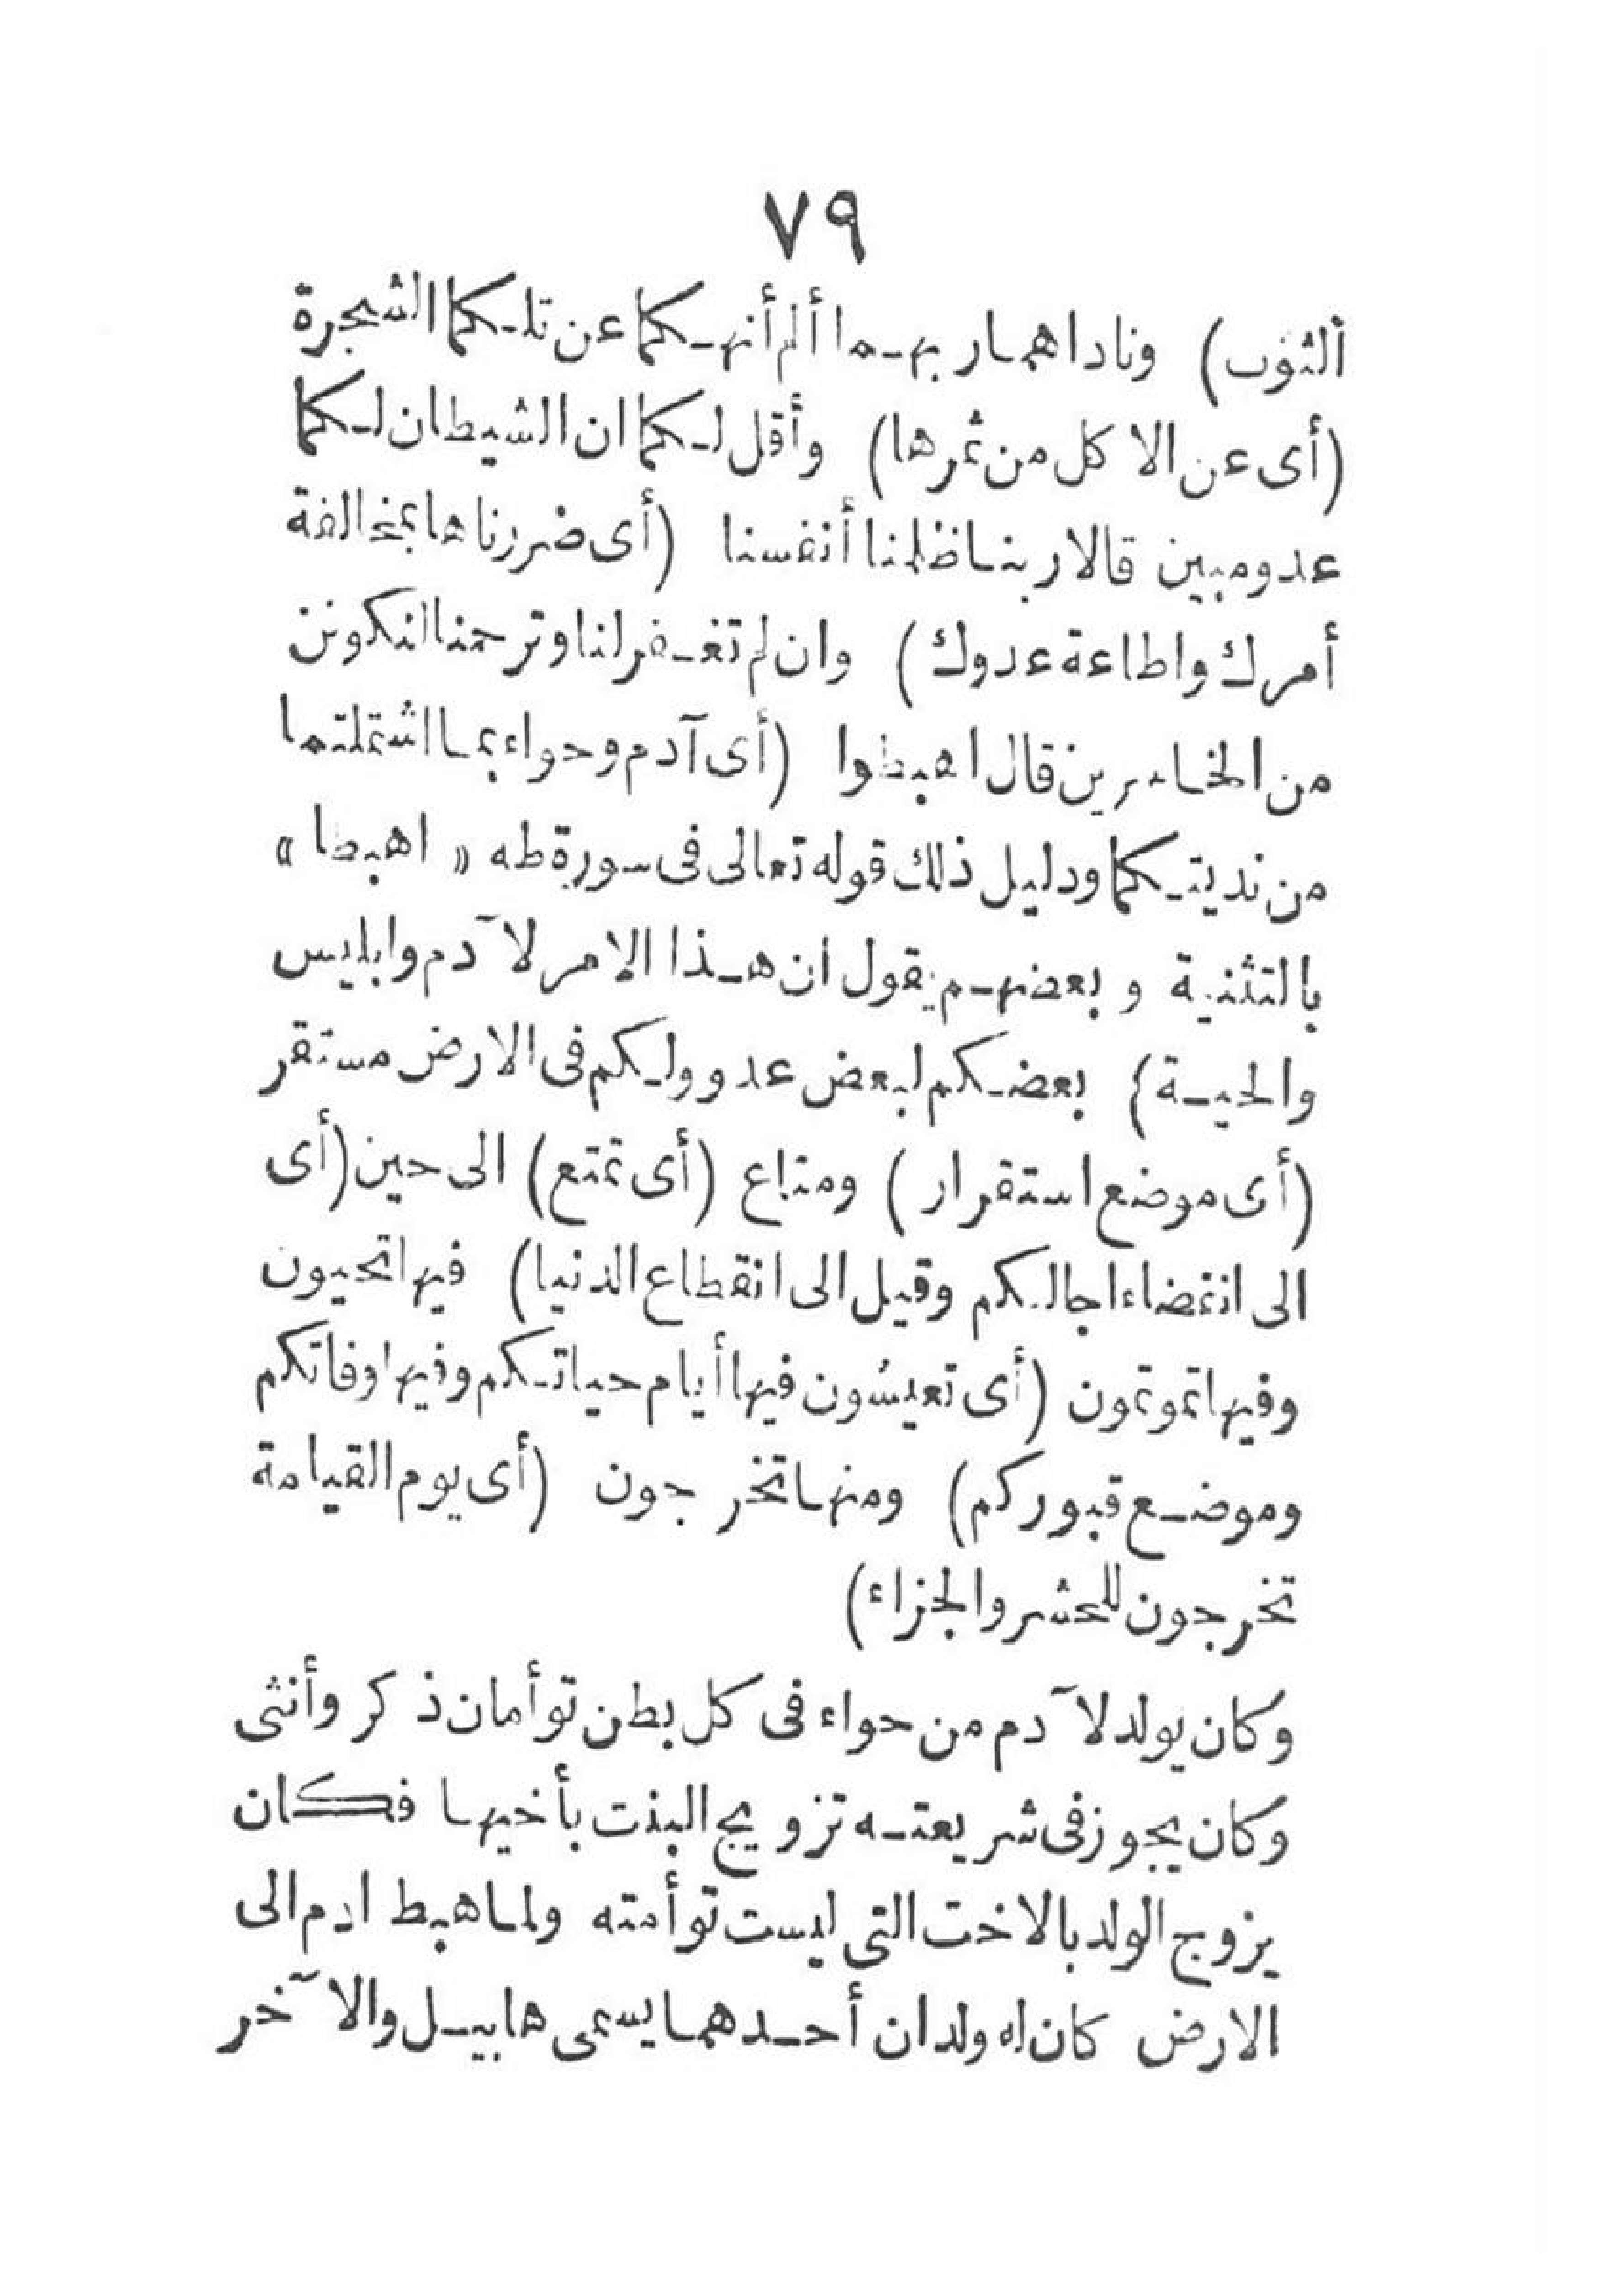 ٧٩
ألثوب) وناداهما ربهما ألم أنهكما عن تلكما الشجرة
(أى عن الاكل من ثمرها) وأقل لكما ان الشيطان لكما
عدو مبين قالا ربنا ظلمنا أنفسنا (أى ضررناها بمخالفة
أمرك واطاعة عدوك) وان لم تغفر لنا وترحمنا لنكونن
من الخاسرين قال اهبطوا (أى آدم وحواء بما اشتملتما
من نديتكما ودليل ذلك قوله تعالى فى سورة طه « اهبطا »
بالتثنية و بعضهم يقول ان هذا الامر لآدم وابليس
والحية) بعضكم لبعض عدو ولكم فى الارض مستقر
(أى موضع استقرار) ومتاع (أى تمتع) الى حين (أى
الى انقضاء اجالكم وقيل الى انقطاع الدنيا) فيها تحيون
وفيها تموتون (أى تعيشون فيها أيام حياتكم وفيها وفاتكم
وموضع قبوركم) ومنها تخرجون (أى يوم القيامة
تخرجون للحشر والجزاء)
وكان يولد لآدم من حواء فى كل بطن توأمان ذكر وأنثى
وكان يجوز فى شريعته تزويج البنت بأخيها فكان
يزوج الولد بالاخت التى ليست توأمته ولما هبط ادم الى
الارض كان له ولدان أحدهما يسمى هابيل والآخر